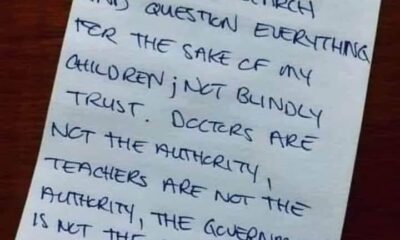 AND QUESTION EVERYTHING
FOR THE SAKE OF MY
CHILDREN; NOT BLINDLY
TRUST. DOCTORS ARE
NOT THE AUTHORITY,
TEACHERS ARE NOT THE
AUTHORITY, THE
IS NOT THE